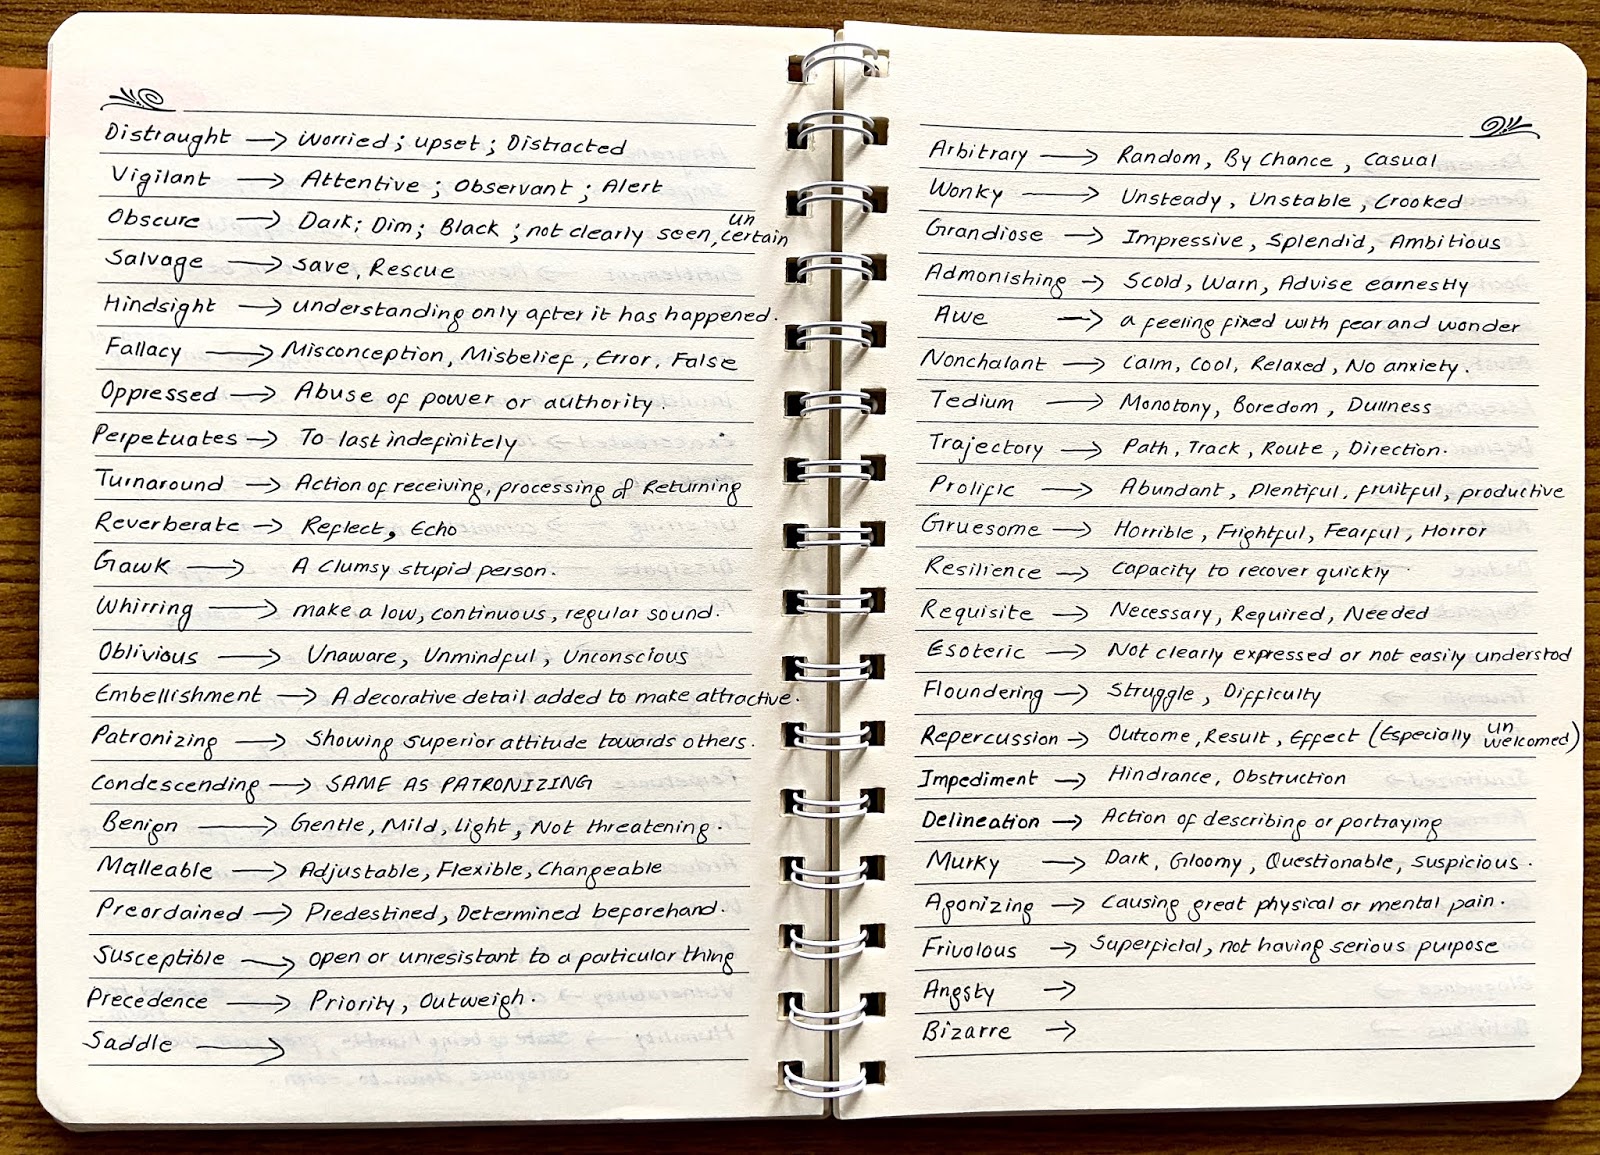 Distraught → Worried; upset; Distracted
Vigilant → Attentive; Observant; Alert
Obscure → Dark; Dim; Black; not clearly seen, uncertain
Salvage → Save, Rescue
Hindsight → understanding only after it has happened.
Fallacy → Misconception, Misbelief, Error, False
Oppressed → Abuse of power or authority.
Perpetuates → To last indefinitely
Turnaround → Action of receiving, processing of Returning
Reverberate → Reflect, Echo
Gawk → A clumsy stupid person.
Whirring → make a low, continuous, regular sound.
Oblivious → Unaware, Unmindful, Unconscious
Embellishment → A decorative detail added to make attractive.
Patronizing → Showing superior attitude towards others.
Condescending → SAME AS PATRONIZING
Benign → Gentle, Mild, light, Not threatening.
Malleable → Adjustable, Flexible, Changeable
Preordained → Predestined, Determined beforehand.
Susceptible → open or unresistant to a particular thing
Precedence → Priority, Outweigh.
Saddle →
Arbitrary → Random, By Chance, Casual
Wonky → Unsteady, Unstable, Crooked
Grandiose → Impressive, Splendid, Ambitious
Admonishing → Scold, Warn, Advise earnestly
Awe → a feeling fixed with fear and wonder
Nonchalant → Calm, Cool, Relaxed, No anxiety.
Tedium → Monotony, Boredom, Dullness
Trajectory → Path, Track, Route, Direction.
Prolific → Abundant, Plentiful, fruitful, productive
Gruesome → Horrible, Frightful, Fearful, Horror
Resilience → Capacity to recover quickly
Requisite → Necessary, Required, Needed
Esoteric → Not clearly expressed or not easily understod
Floundering → Struggle, Difficulty
Repercussion → Outcome, Result, Effect (Especially unwelcomed)
Impediment → Hindrance, Obstruction
Delineation → Action of describing or portraying
Murky → Dark, Gloomy, Questionable, Suspicious.
Agonizing → Causing great physical or mental pain.
Frivolous → Superficial, not having serious purpose
Angsty →
Bizarre →